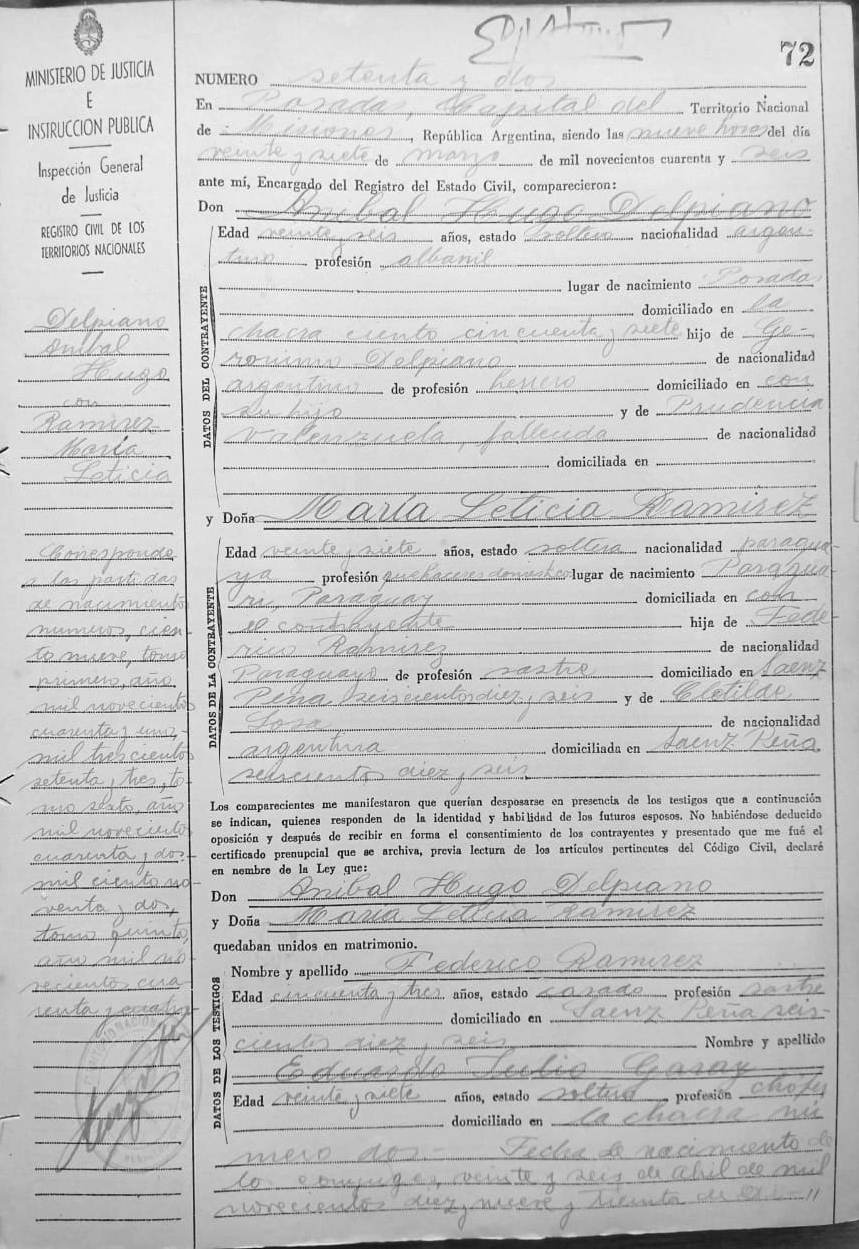 72
MINISTERIO DE JUSTICIA
E
INSTRUCCION PUBLICA
Inspección General
de Justicia
REGISTRO CIVIL DE LOS
TERRITORIOS NACIONALES
Delpiano
Anibal
Hugo
con
Ramirez
María
Leticia
Corresponde
a las partidas
de nacimiento
numeros, cien-
to nueve, tomo
primero, año
mil novecientos
cuarenta y uno,
mil trescientos
setenta y tres, to-
mo sexto, año
mil noveciento
cuarenta y dos
mil ciento no-
venta y dos,
tomo quinto,
año mil no-
vecientos cua-
renta y cuatro
NUMERO setenta y dos
En Posadas, Capital del Territorio Nacional
de Misiones, República Argentina, siendo las nueve horas del día
veinte y siete de marzo de mil novecientos cuarenta y seis
ante mí, Encargado del Registro del Estado Civil, comparecieron:
Don Anibal Hugo Delpiano
DATOS DEL CONTRAYENTE
Edad veinte y seis años, estado soltero nacionalidad argen-
tino profesión albanil
lugar de nacimiento Posadas
domiciliado en la
chacra ciento cincuenta y siete hijo de Ge-
ronimo Delpiano de nacionalidad
argentino de profesión herrero domiciliado en con
su hijo y de Prudencia
Valenzuela, fallecida de nacionalidad
domiciliada en
y Doña María Leticia Ramirez
DATOS DE LA CONTRAYENTE
Edad veinte y siete años, estado soltera nacionalidad paragua-
ya profesión quehaceres domestico lugar de nacimiento Paragua-
ri, Paraguay domiciliada en con
el contrayente hija de Fede-
rico Ramirez de nacionalidad
Paraguayo de profesión sastre domiciliado en Saenz
Peña seiscientos diez y seis y de Clotilde
Sosa de nacionalidad
argentina domiciliada en Saenz Peña
seiscientos diez y seis
Los comparecientes me manifestaron que querían desposarse en presencia de los testigos que a continuación
se indican, quienes responden de la identidad y habilidad de los futuros esposos. No habiéndose deducido
oposición y después de recibir en forma el consentimiento de los contrayentes y presentado que me fué el
certificado prenupcial que se archiva, previa lectura de los artículos pertinentes del Código Civil, declaré
en nombre de la Ley que:
Don Anibal Hugo Delpiano
y Doña María Leticia Ramirez
quedaban unidos en matrimonio.
DATOS DE LOS TESTIGOS
Nombre y apellido Federico Ramirez
Edad cincuenta y tres años, estado casado profesión sastre
domiciliado en Saenz Peña seis-
cientos diez y seis Nombre y apellido
Eduardo Julio Garay
Edad veinte y siete años, estado soltero profesión chofer
domiciliado en la chacra nú
mero dos.- Fecha de nacimiento de
los conyuges, veinte y seis de abril de mil
novecientos diez y nueve y treinta de